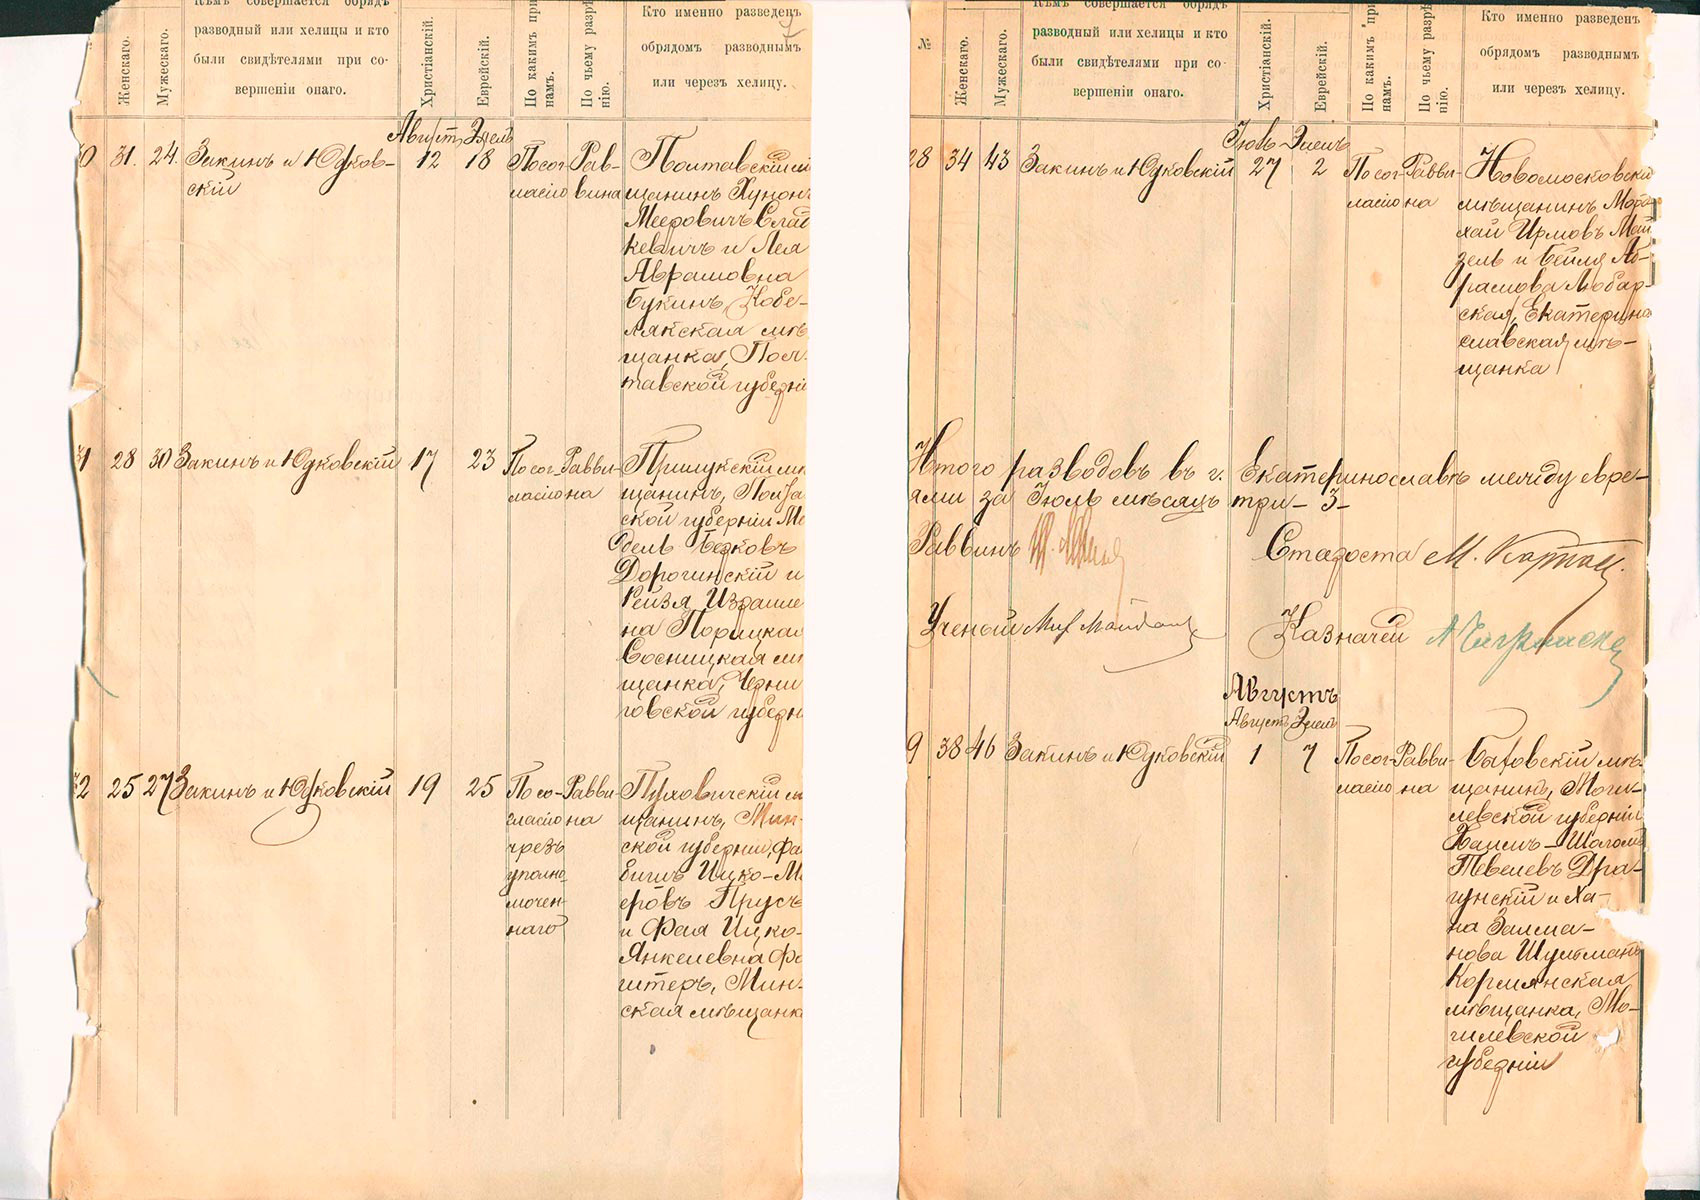 Женскаго.
Мужескаго.
Кѣмъ совершается обрядъ
разводный или хелицы и кто
были свидѣтелями при со-
вершеніи онаго.
Христіанскій.
Еврейскій.
По какимъ при
намъ.
По чьему разрѣ
нію.
Кто именно разведенъ
обрядомъ разводнымъ
или черезъ хелицу.
Августъ Элелъ
0 31. 24. Закинъ и Юдков-
скій
12 18 По сог-
ласію
Рав-
вина
Полтавскій мѣ
щанинъ Хунонъ
Мееровичъ Слав
кевичъ и Лея
Аврамовна
Букинъ, Кобе-
лякская мѣ
щанка, Пол-
тавской губерніи
31 28 30 Закинъ и Юдковскій 17 23 По сог-
ласію
Равви-
на
Прилукскій мѣ
щанинъ, Полта
ской губерніи Мо
Берковъ
Дорогинскій и
Рейзя Израиле
на Порицкая
Сосницкая мѣ
щанка, Черни
говской губерн
32 25 27 Закинъ и Юдковскій 19 25 По со-
гласію
чрезъ
уполно-
мочен-
наго
Равви-
на
Пуховичскій м
щанинъ, Мин-
ской губерніи, Фа
бишъ Ицко-М
еровъ Прусъ
и Фая Ицко-
Янкелевна Фо
штеръ, Мин-
ская мѣщанка
№
Женскаго.
Мужескаго.
Кѣмъ совершается обрядъ
разводный или хелицы и кто
были свидѣтелями при со-
вершеніи онаго.
Христіанскій.
Еврейскій.
По какимъ при
намъ.
По чьему разрѣ
нію.
Кто именно разведенъ
обрядомъ разводнымъ
или черезъ хелицу.
Іюль Элелъ
28 34 43 Закинъ и Юдковскій 27 2 По сог-
ласію
Равви-
на
Новомосковскій
мѣщанинъ Морд
хай Ирмовъ Май
зель и Бейля Аб-
рамова Любар-
ская, Екатерино
славская мѣ-
щанка
Итого разводовъ въ г. Екатеринославѣ между евре-
ями за Іюль мѣсяцъ три - 3 -
Раввинъ
Староста М.
Ученый
Казначей
Августъ
Августъ Элелъ
9 38 46 Закинъ и Юдковскій 1 7 По сог-
ласію
Равви-
на
Быховскій мѣ-
щанинъ, Моги-
левской губерніи
Хаимъ-Шоломъ
Тевелевъ Дра-
гунскій и Ха-
на Залма-
нова Шульманъ
Кормянская
мѣщанка, Мо-
гилевской
губерніи